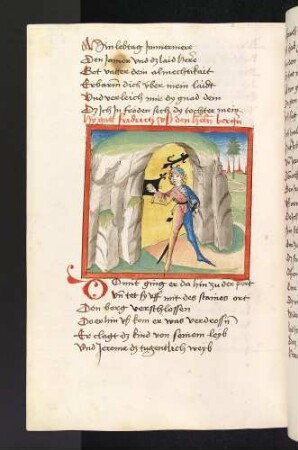 Min lebtag Jmmermere
Den Jamer und dz laid here
Got vatter dein almechtikait
Erbarm dich über mein laidt
Und verleich mir dz gnad dem
Dz Jch Jn fröden sech dz tochter mein
Hy gatt fridrich uß den berg
Domit ging er da hin zu der port
Un tet sy uff mit des staines ort
Den berg verschlossen
Do er hin uß kom er was verdrossn
Er clagt dz kind von seinem leyb
Und Jerome dz tugentlich weyb